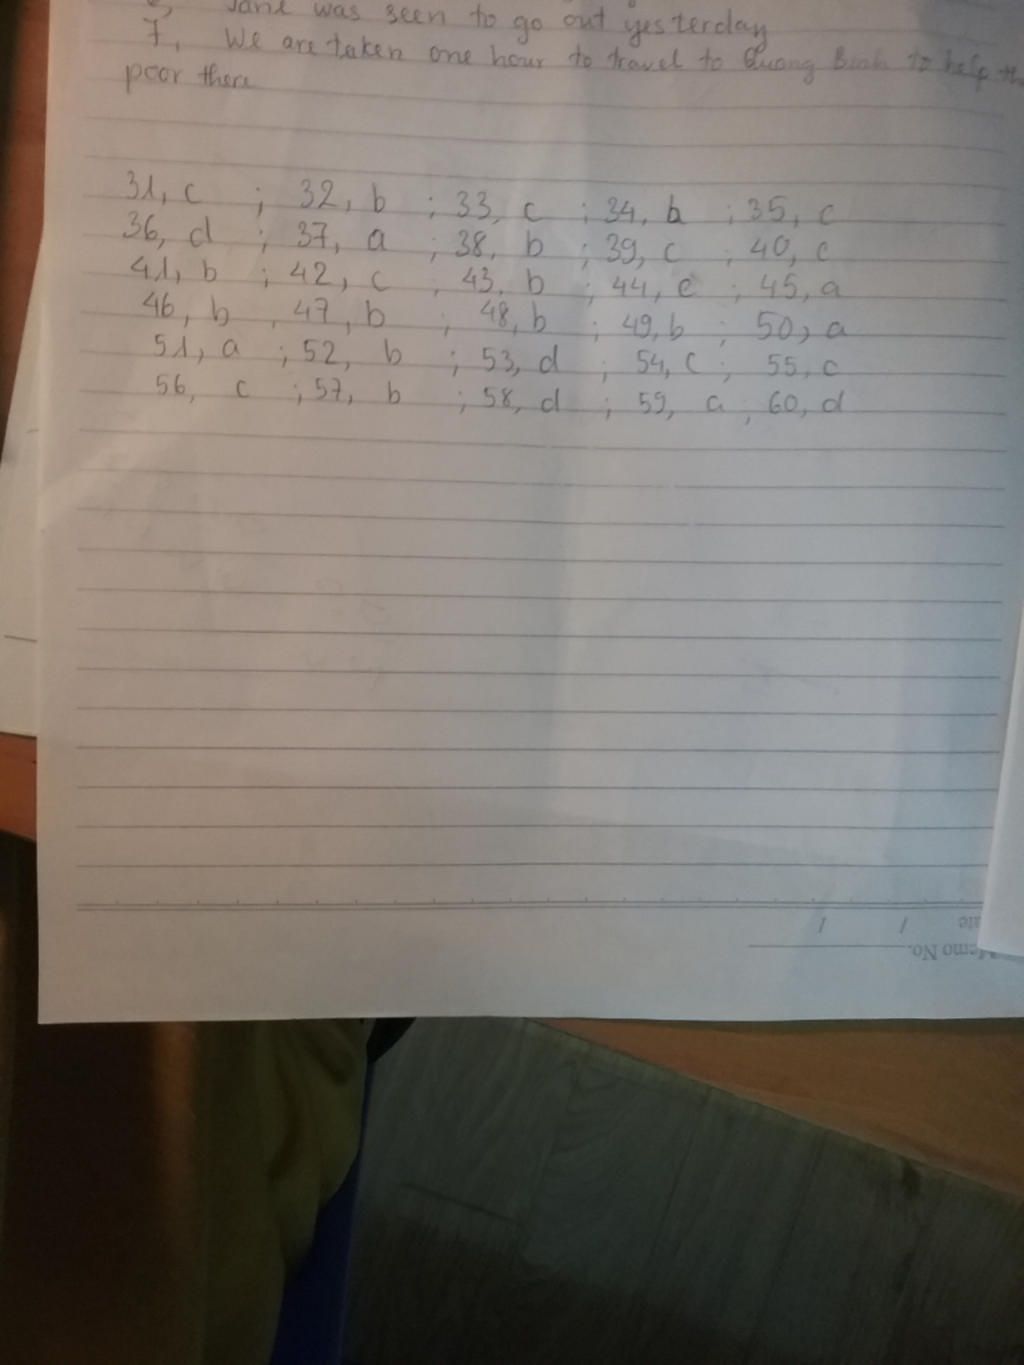 Jane was seen to go out yesterday
7, We are taken one hour to travel to Quang Binh to help the
poor there
31, c ; 32, b ; 33, c ; 34, b ; 35, c
36, d ; 37, a ; 38, b ; 39, c ; 40, c
41, b ; 42, c ; 43, b ; 44, c ; 45, a
46, b ; 47, b ; 48, b ; 49, b ; 50, a
51, a ; 52, b ; 53, d ; 54, c ; 55, c
56, c ; 57, b ; 58, d ; 59, a ; 60, d
/ /
Memo No.